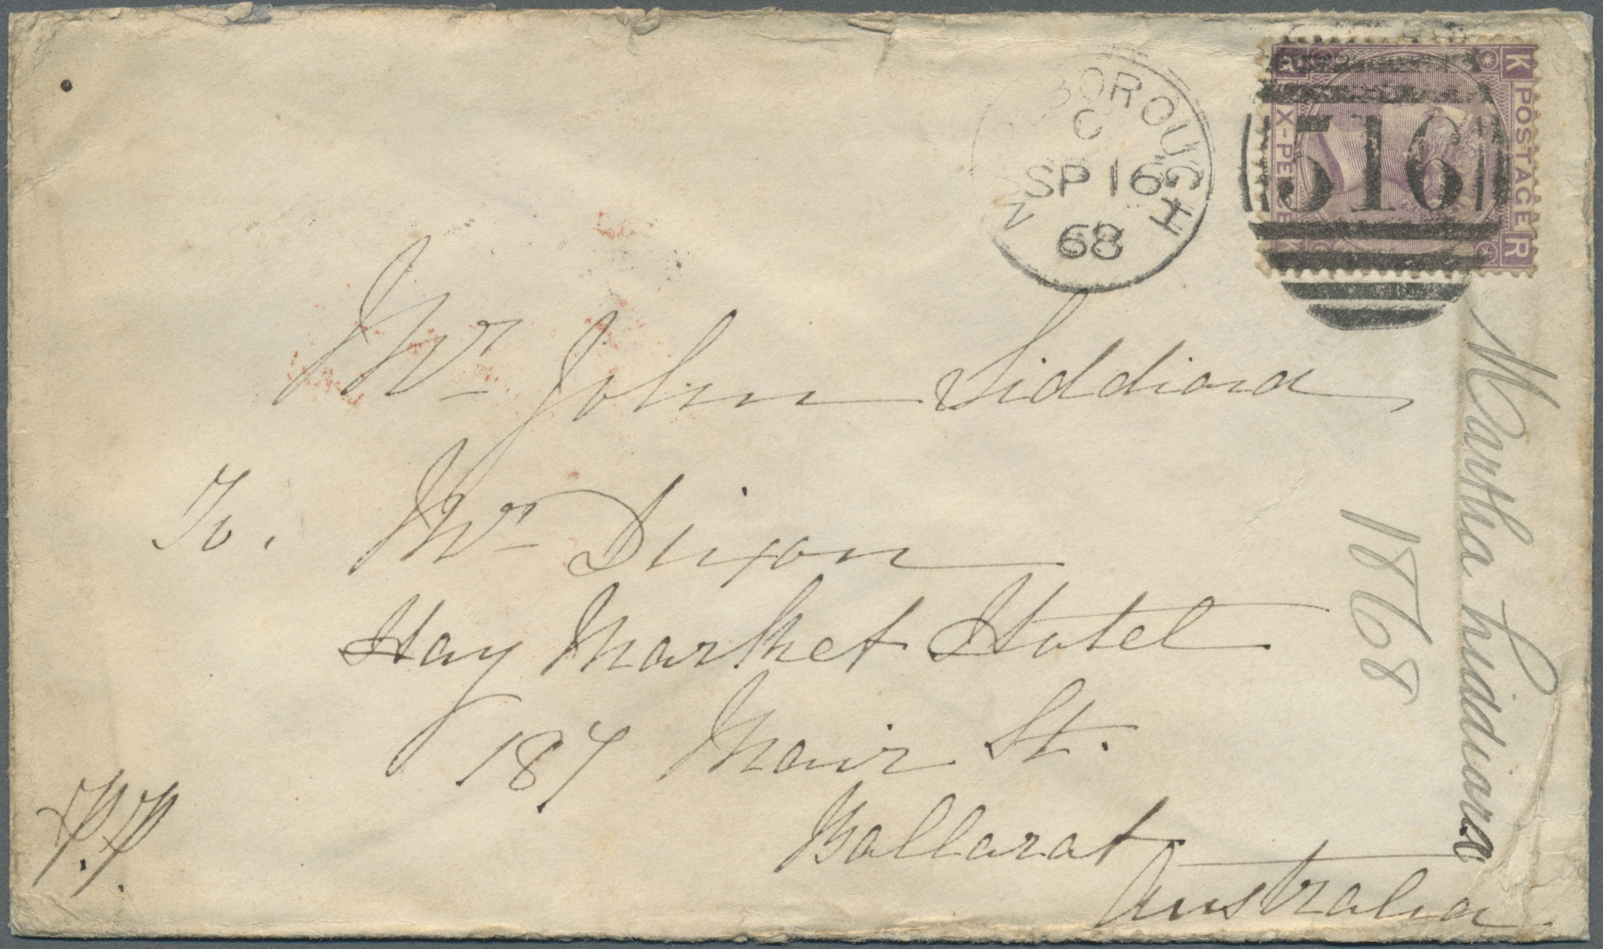 BOROUGH
C
SP 16
68
516
SIX-PENCE
POSTAGE
K
R
Mr. John Liddiard
To. Mr. Dixon
Hay Market Hotel
187 Mair St.
Ballarat
Australia
P.P.
Martha Liddiard
1868